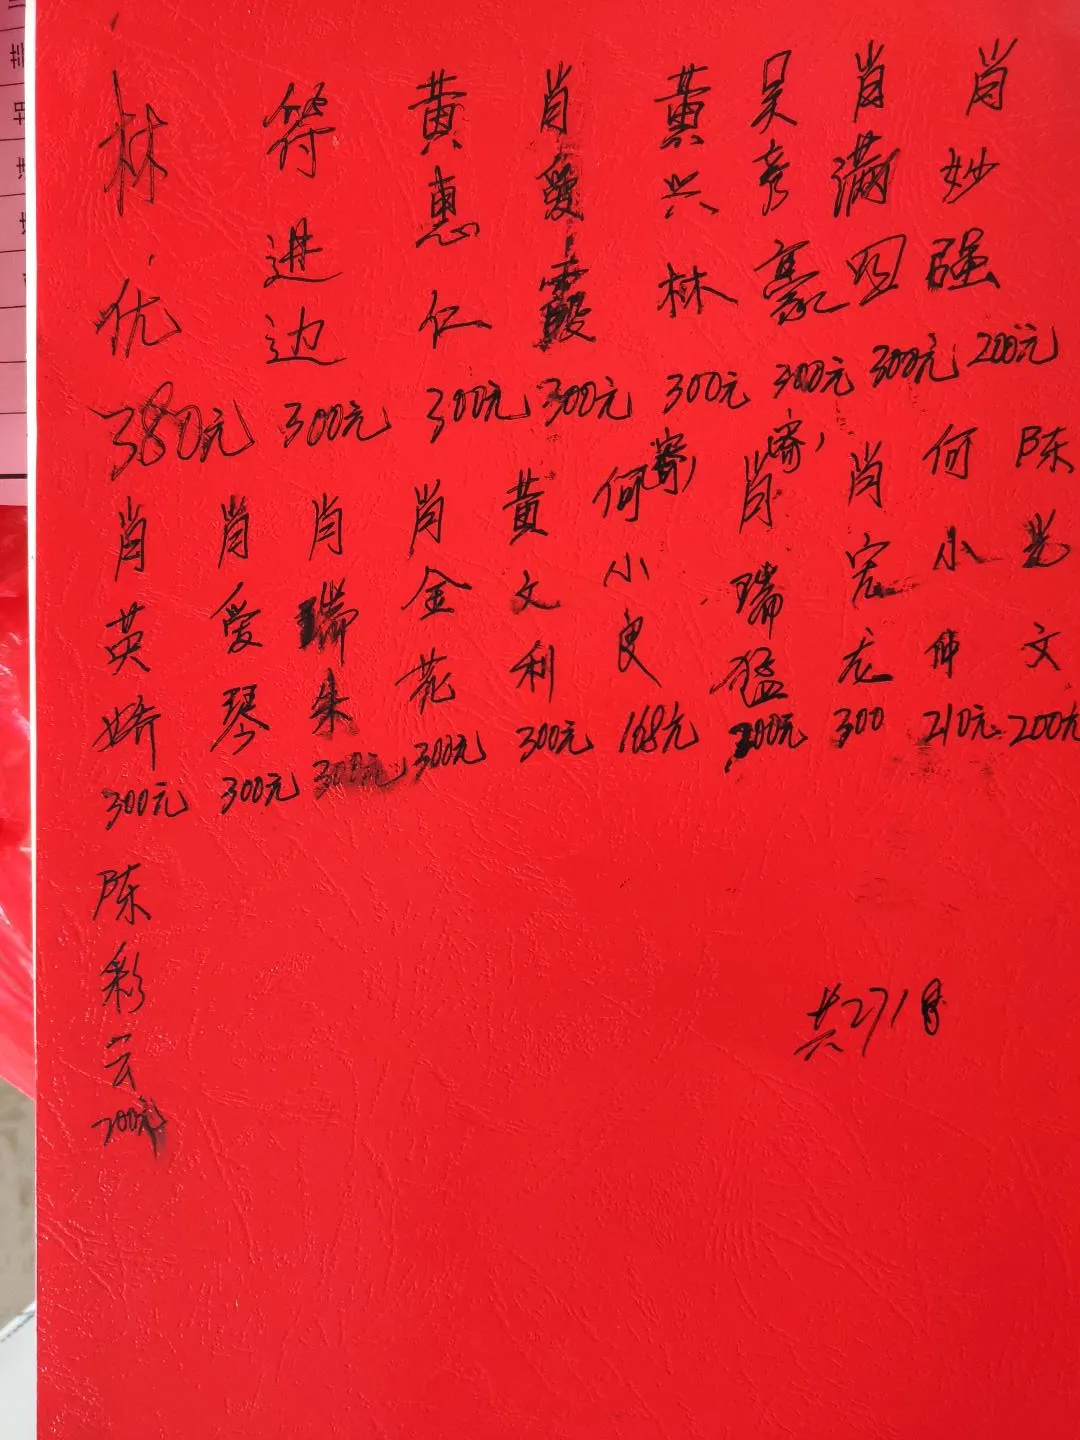 林优 380元
符进边 300元
黄惠仁 300元
肖爱霞 300元
黄兴林 300元
吴 豪 300元
肖满 300元
肖妙强 200元
肖英娇 300元
肖爱琴 300元
肖瑞朱 300元
肖金花 300元
黄文利 300元
何小良 168元
肖瑞猛 300元
肖宏龙 300
何小伸 210元
陈光文 200元
陈彩云 200元
共2718